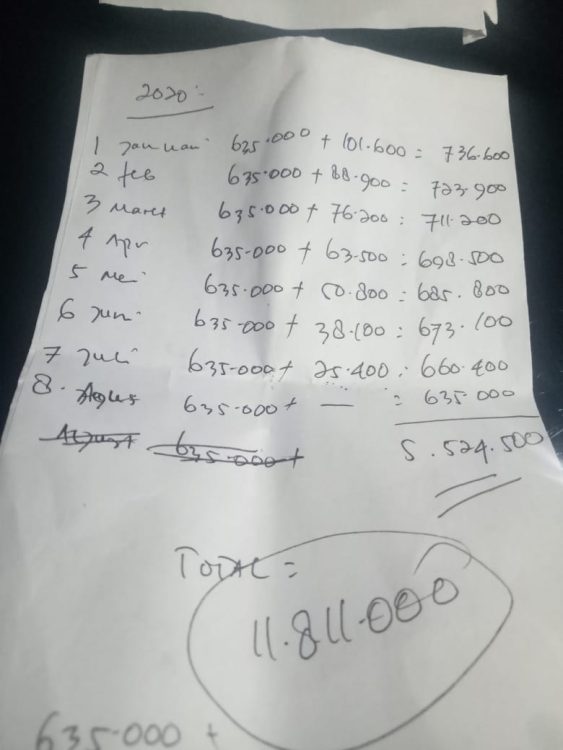 2020:-
1 Januari 635.000 + 101.600 = 736.600
2 feb 635.000 + 88.900 = 723.900
3 Maret 635.000 + 76.200 : 711.200
4 Apr 635.000 + 63.500 : 698.500
5 Mei 635.000 + 50.800 = 685.800
6 Juni 635.000 + 38.100 = 673.100
7 Juli 635.000 + 25.400 : 660.400
8. Agus 635.000 + — = 635.000
August 635.000 +
5.524.500
TOTAL =
11.811.000
635.000 +